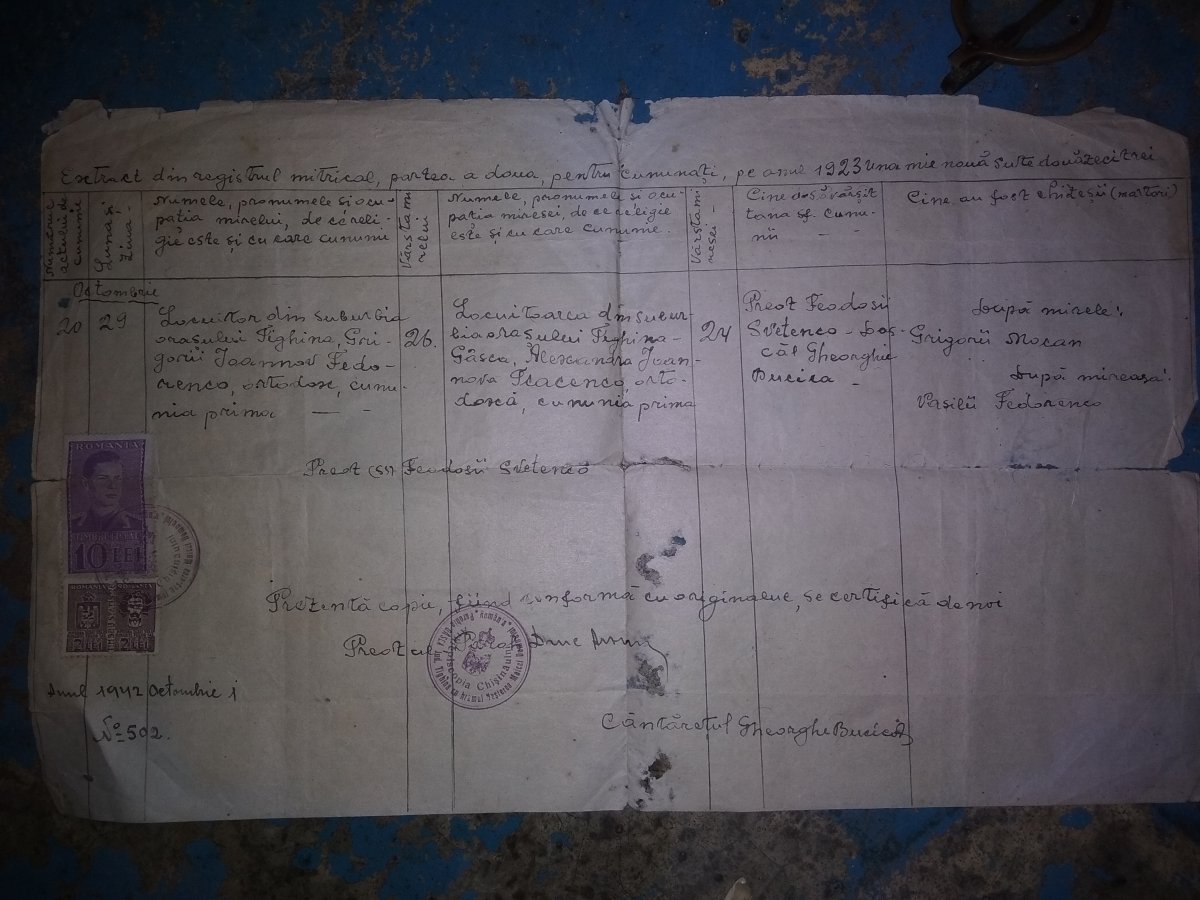 Extract din registrul mitrical, partea a doua, pentru cununați, pe anul 1923 una mie nouă sute douăzeci trei
Numărul
actului de
cununie
Luna și
ziua
Numele, pronumele și ocu-
pația mirelui, de ce reli-
gie este și cu care cununie
Vârsta mi
relui
Numele, pronumele și ocu-
pația miresei, de ce religie
este și cu care cununie.
Vârsta mi
resei
Cine a săvârșit
taina sf. cunu-
nii
Cine au fost chizeșii (martori)
Octombrie
20
29
Locuitor din suburbia
orașului Tighina, Gri-
gorii Ioannov Fedo-
renco, ortodox, cunu-
nia prima
26.
Locuitoarea din subur-
bia orașului Tighina-
Gâsca, Alexandra Ioan-
nova Tcacenco, orto-
doxă, cununia prima
24
Preot Feodosii
Svetenco - Das-
căl Gheorghie
Bucica
După mirele:
Grigorii Mocan
După mireasa:
Vasilii Fedorenco
Preot (ss) Feodosii Svetenco
ROMANIA
10 LEI
ROMANIA ROMANIA
2 LEI 2 LEI
Prezentă copie, fiind conformă cu originalul, se certifică de noi
Preotul Paroh
Chișinăului
Anul 1942 Octombrie 1
No 502.
Cântărețul Gheorghe Bucica